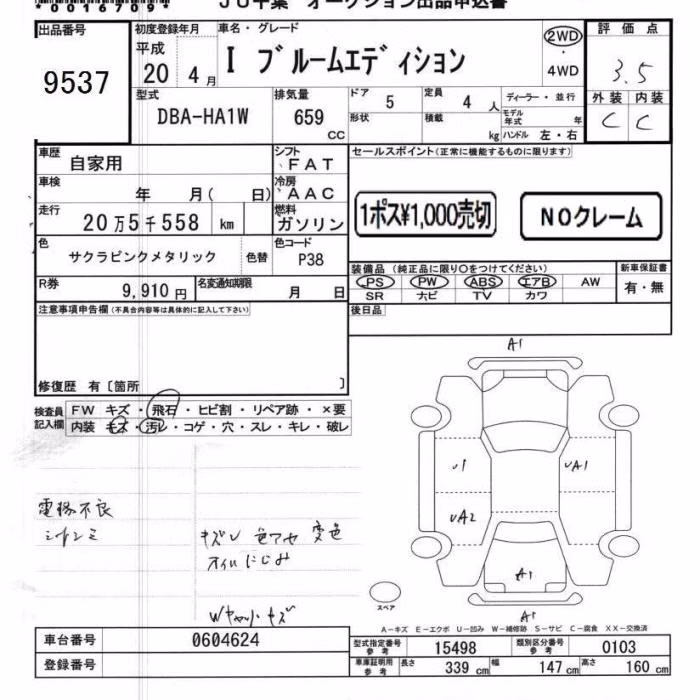 *00167090*
JU千葉 オークション出品申込書
出品番号
9537
初度登録年月
平成
20 4月
車名・グレード
I ブルームエディション
2WD
・
4WD
評価点
3.5
外装 内装
C C
型式
DBA-HA1W
排気量
659
CC
ドア
5
定員
4 人
ディーラー・並行
モデル年式 年
形状
積載
kg
ハンドル 左・右
車歴
自家用
シフト
FAT
車検
年 月( 日)
冷房
AAC
走行
20万5千558 km
燃料
ガソリン
色
サクラピンクメタリック
色替
色コード
P38
R券
9,910 円
名変通知期限
月 日
セールスポイント(正常に機能するものに限ります)
1ポス¥1,000売切
NOクレーム
装備品 (純正品に限り○をつけてください)
PS PW ABS エアB AW
SR ナビ TV カワ
新車保証書
有・無
後日品
注意事項申告欄(不具合内容等は具体的に記入して下さい)
修復歴 有〔箇所 〕
検査員記入欄
FW キズ・飛石・ヒビ割・リペア跡・×要
内装 キズ・汚レ・コゲ・穴・スレ・キレ・破レ
A1
U1
UA1
UA2
A1
A1
スペア
不良
キズ 色アセ 変色
オイルにじみ
キズ
A−キズ E−エクボ U−凹み W−補修跡 S−サビ C−腐食 XX−交換済
車台番号
0604624
登録番号
型式指定番号 参考
15498
類別区分番号 参考
0103
車庫証明用 参考
長さ 339 cm
幅 147 cm
高さ 160 cm